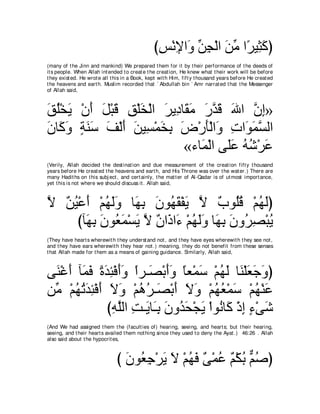 (كَثِيرًا مِّنَ الْجِنِّ وَالإِنْسِ)
(many of the Jinn and mankind) We prepared them for it by their performance of the deeds of its people. When Allah intended to create the creation, He knew what their work will be before they existed. He wrote all this in a Book, kept with Him, fifty thousand years before He created the heavens and earth. Muslim recorded that `Abdullah bin `Amr narrated that the Messenger of Allah said,
«إِنَّ اللهَ قَدَّرَ مَقَادِيرَ الْخَلْقِ قَبْلَ أَنْ يَخْلُقَ
السَّمَوَاتِ وَالْأَرْضَ بِخَمْسِينَ أَلْفَ سَنَةٍ وَكَانَ
عَرْشُهُ عَلَى الْمَاء»
(Verily, Allah decided the destination and due measurement of the creation fifty thousand years before He created the heavens and earth, and His Throne was over the water.) There are many Hadiths on this subject, and certainly, the matter of Al-Qadar is of utmost importance, yet this is not where we should discuss it. Allah said,
(لَهُمْ قُلُوبٌ لاَّ يَفْقَهُونَ بِهَا وَلَهُمْ أَعْيُنٌ لاَّ
يُبْصِرُونَ بِهَا وَلَهُمْ ءَاذَانٌ لاَّ يَسْمَعُونَ بِهَآ)
(They have hearts wherewith they understand not, and they have eyes wherewith they see not, and they have ears wherewith they hear not.) meaning, they do not benefit from these senses that Allah made for them as a means of gaining guidance. Similarly, Allah said,
(وَجَعَلْنَا لَهُمْ سَمْعاً وَأَبْصَـراً وَأَفْئِدَةً فَمَآ أَغْنَى
عَنْهُمْ سَمْعُهُمْ وَلاَ أَبْصَـرُهُمْ وَلاَ أَفْئِدَتُهُمْ مِّن
شَىْءٍ إِذْ كَانُواْ يَجْحَدُونَ بِـَايَـتِ اللَّهِ)
(And We had assigned them the (faculties of) hearing, seeing, and hearts; but their hearing, seeing, and their hearts availed them nothing since they used to deny the Ayat.) 46:26 . Allah also said about the hypocrites,
(صُمٌّ بُكْمٌ عُمْىٌ فَهُمْ لاَ يَرْجِعُونَ )